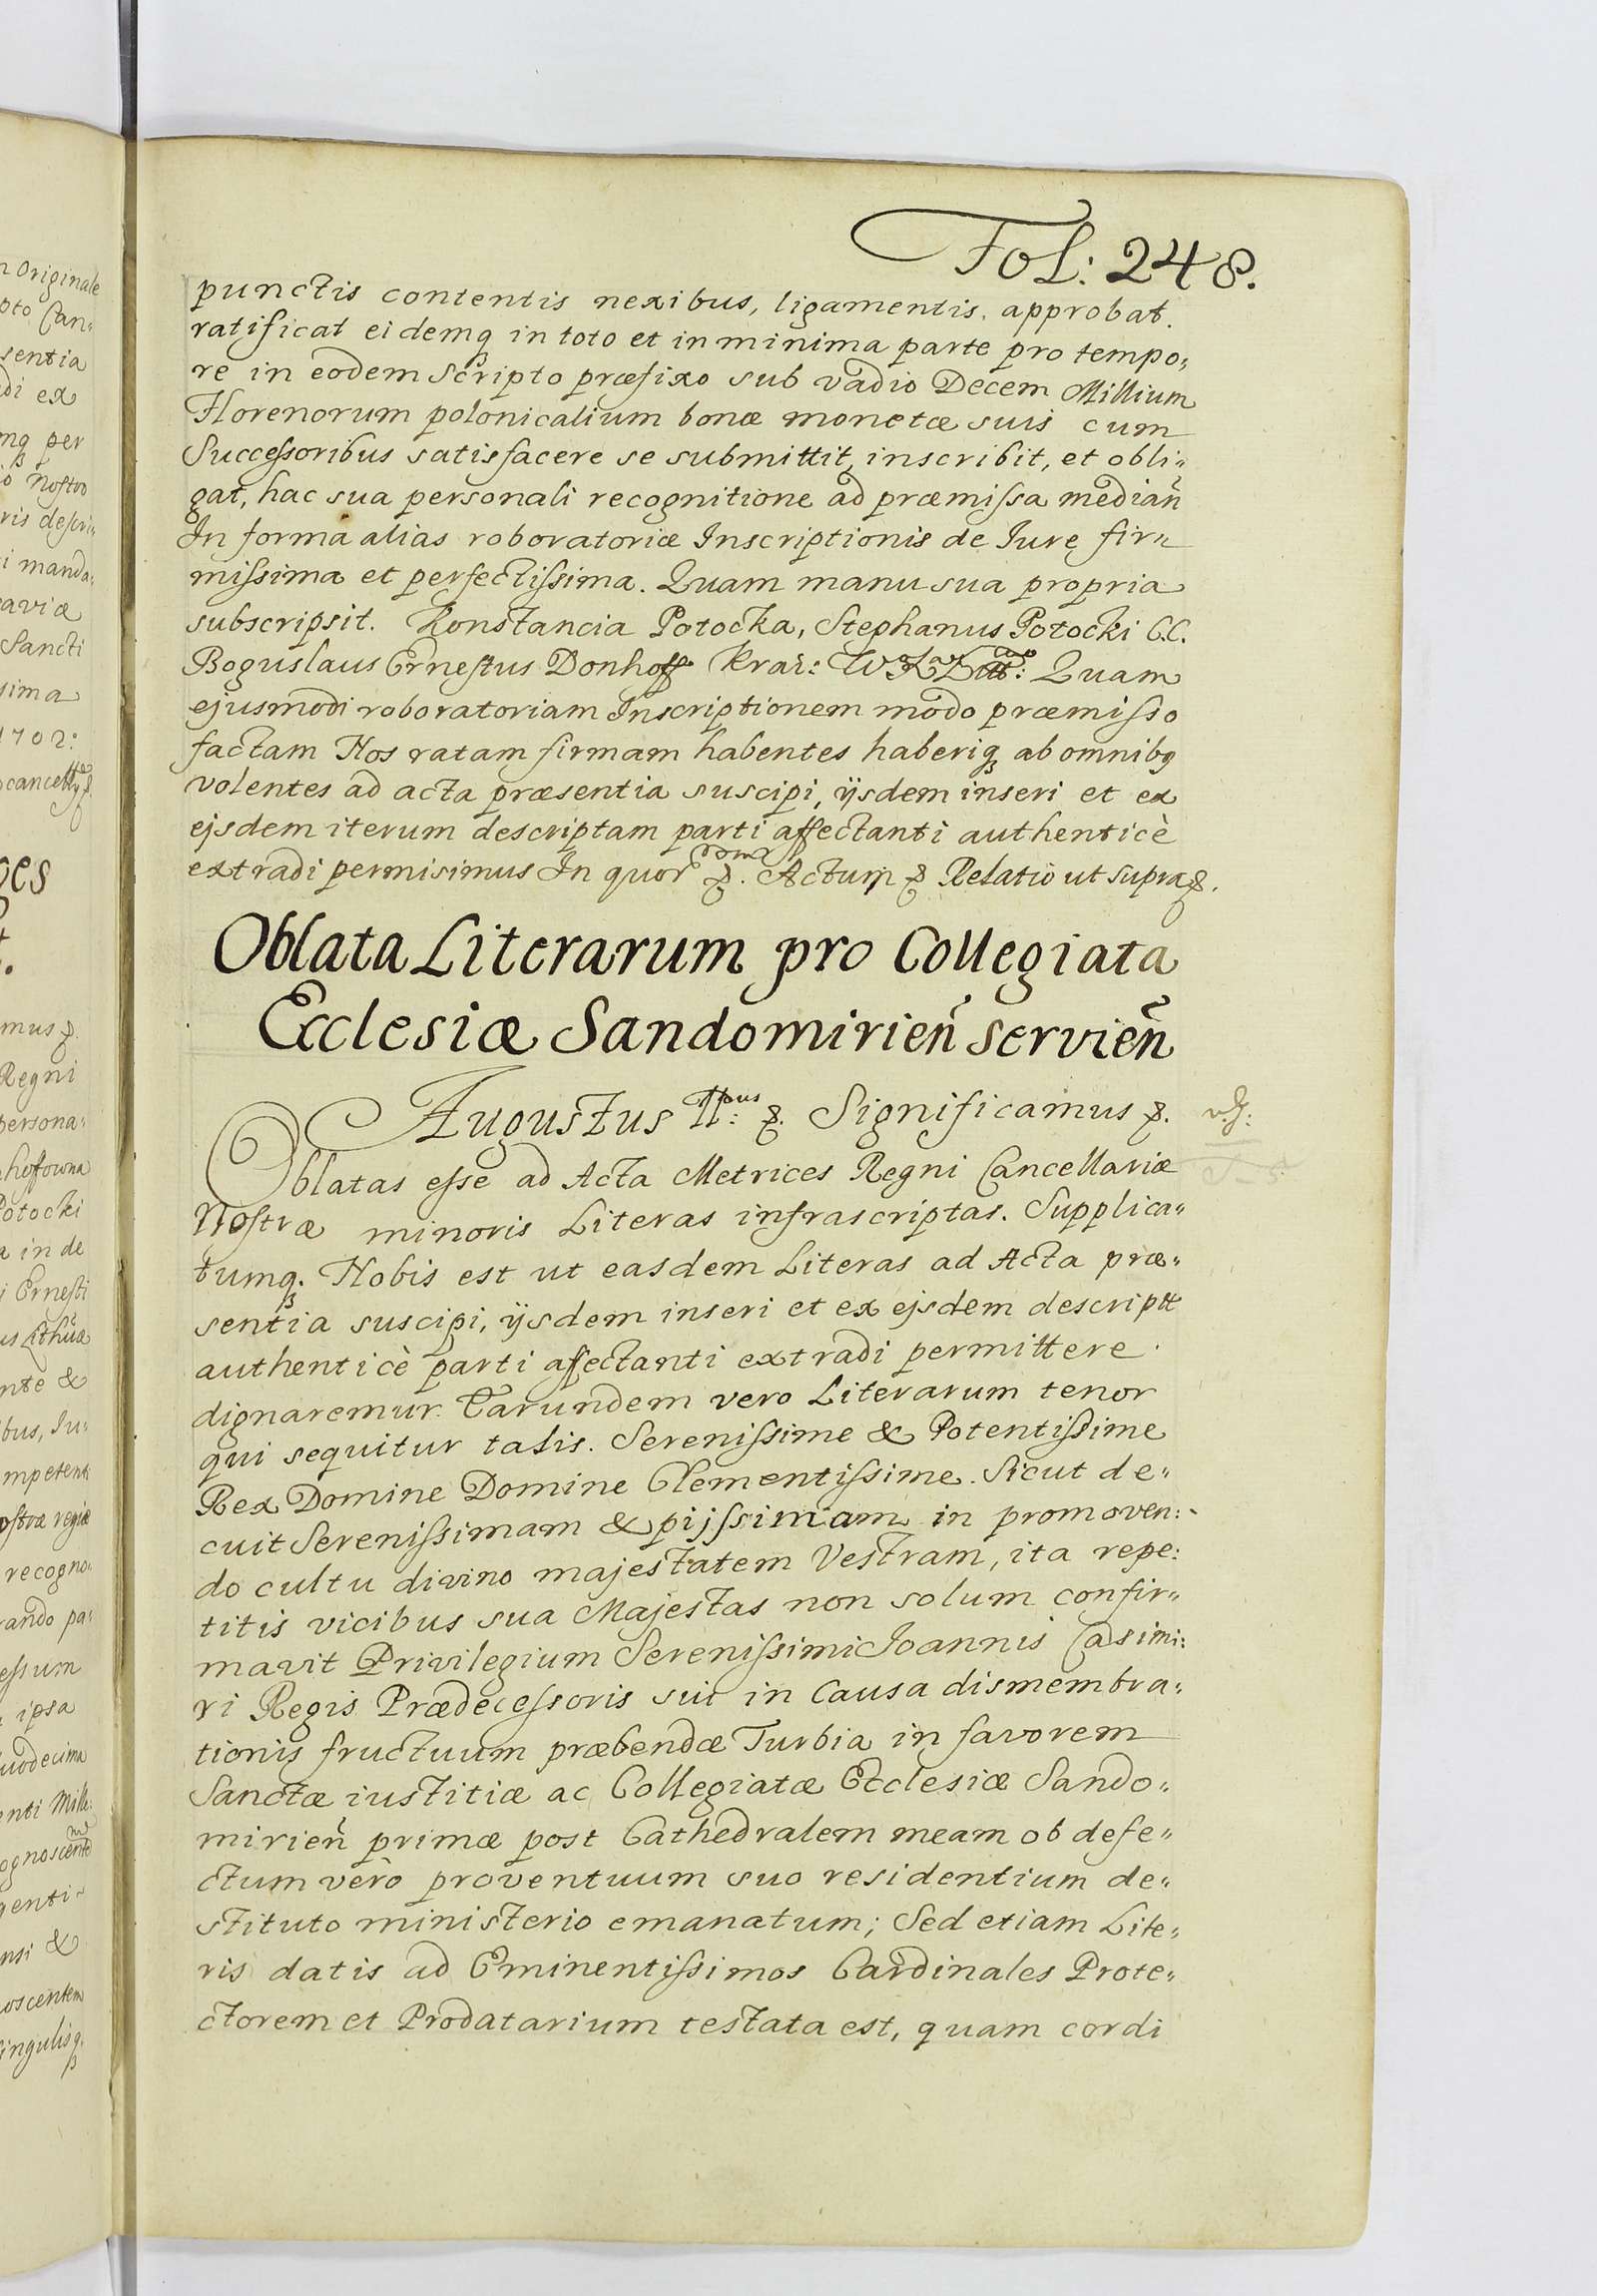 Fol: 248.
punctis contentis nexibus, ligamentis. approbat.
ratificat eidemq in toto et in minima parte pro tempo,
re in eodem Scripto præfixo sub vadio Decem Millium
Florenorum polonicalium bonæ monetæ suis cum
Successoribus satisfacere se submittit, inscribit, et obli„
gat, hac sua personali recognitione ad præmissa median̄
In forma alias roboratoriæ Inscriptionis de Iure fir„
missima et perfectissima. Quam manu sua propria
subscripsit. Konstancia Potocka, Stephanus Potocki C.C.
Boguslaus Ernestus Donhoff Quam
ejusmodi roboratoriam Inscriptionem modo præmisso
factam Nos ratam firmam habentes haberiq ab omnibq
volentes ad acta præsentia suscipi, ijsdem inseri et ex
ejsdem iterum descriptam parti affectanti authenticè
extradi permisimus In quor rdmx &. Actum & Relatio ut supra &.
Oblata Literarum pro Collegiata
Ecclesiæ Sandomirien̄ servien̄
Augustus II:dus &. Significamus &.
Oblatas esse ad Acta Metrices Regni Cancellariæ
Nostræ minoris Literas infrascriptas. Supplica„
tumq. Nobis est ut easdem Literas ad Acta præ„
sentia suscipi, ijsdem inseri et ex ejsdem descriptt
authenticè parti affectanti extradi permittere
dignaremur. Earundem vero Literarum tenor
qui sequitur talis. Serenissime & Potentissime
Rex Domine Domine Clementissime. Sicut de„
cuit Serenissimam & pijssimam in promoven:
do cultu divino majestatem Vestram, ita repe:
titis vicibus sua Majestas non solum confir„
mavit Privilegium Serenissimi Joannis Casimi:
ri Regis Prædecessoris sui in Causa dismembra„
tionis fructuum præbendæ Turbia in favorem
Sanctæ iustitiæ ac Collegiatæ Ecclesiæ Sando„
mirien̄ primæ post Cathedralem meam ob defe„
ctum vèro proventuum suo residentium de„
stituto ministerio emanatum; Sed etiam Lite„
ris datis ad Eminentissimos Cardinales Prote„
ctorem et Prodatarium testata est, quam cordi